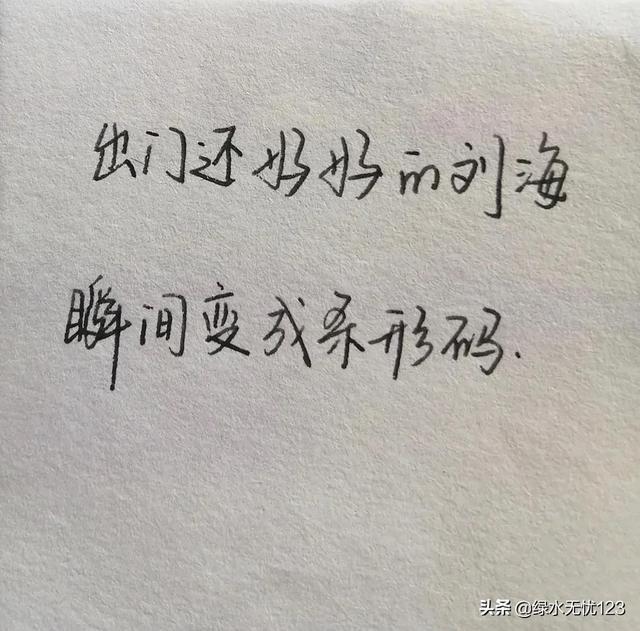 出门还好好的刘海
瞬间变成条形码.
头条 @绿水无忧123